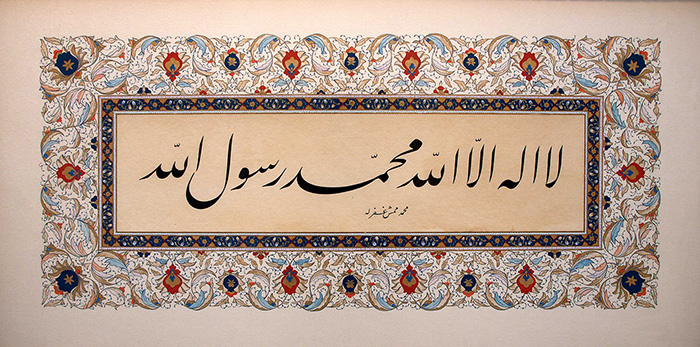 لا اله الّا اللّه محمّد رسول اللّه
محمد غفرله